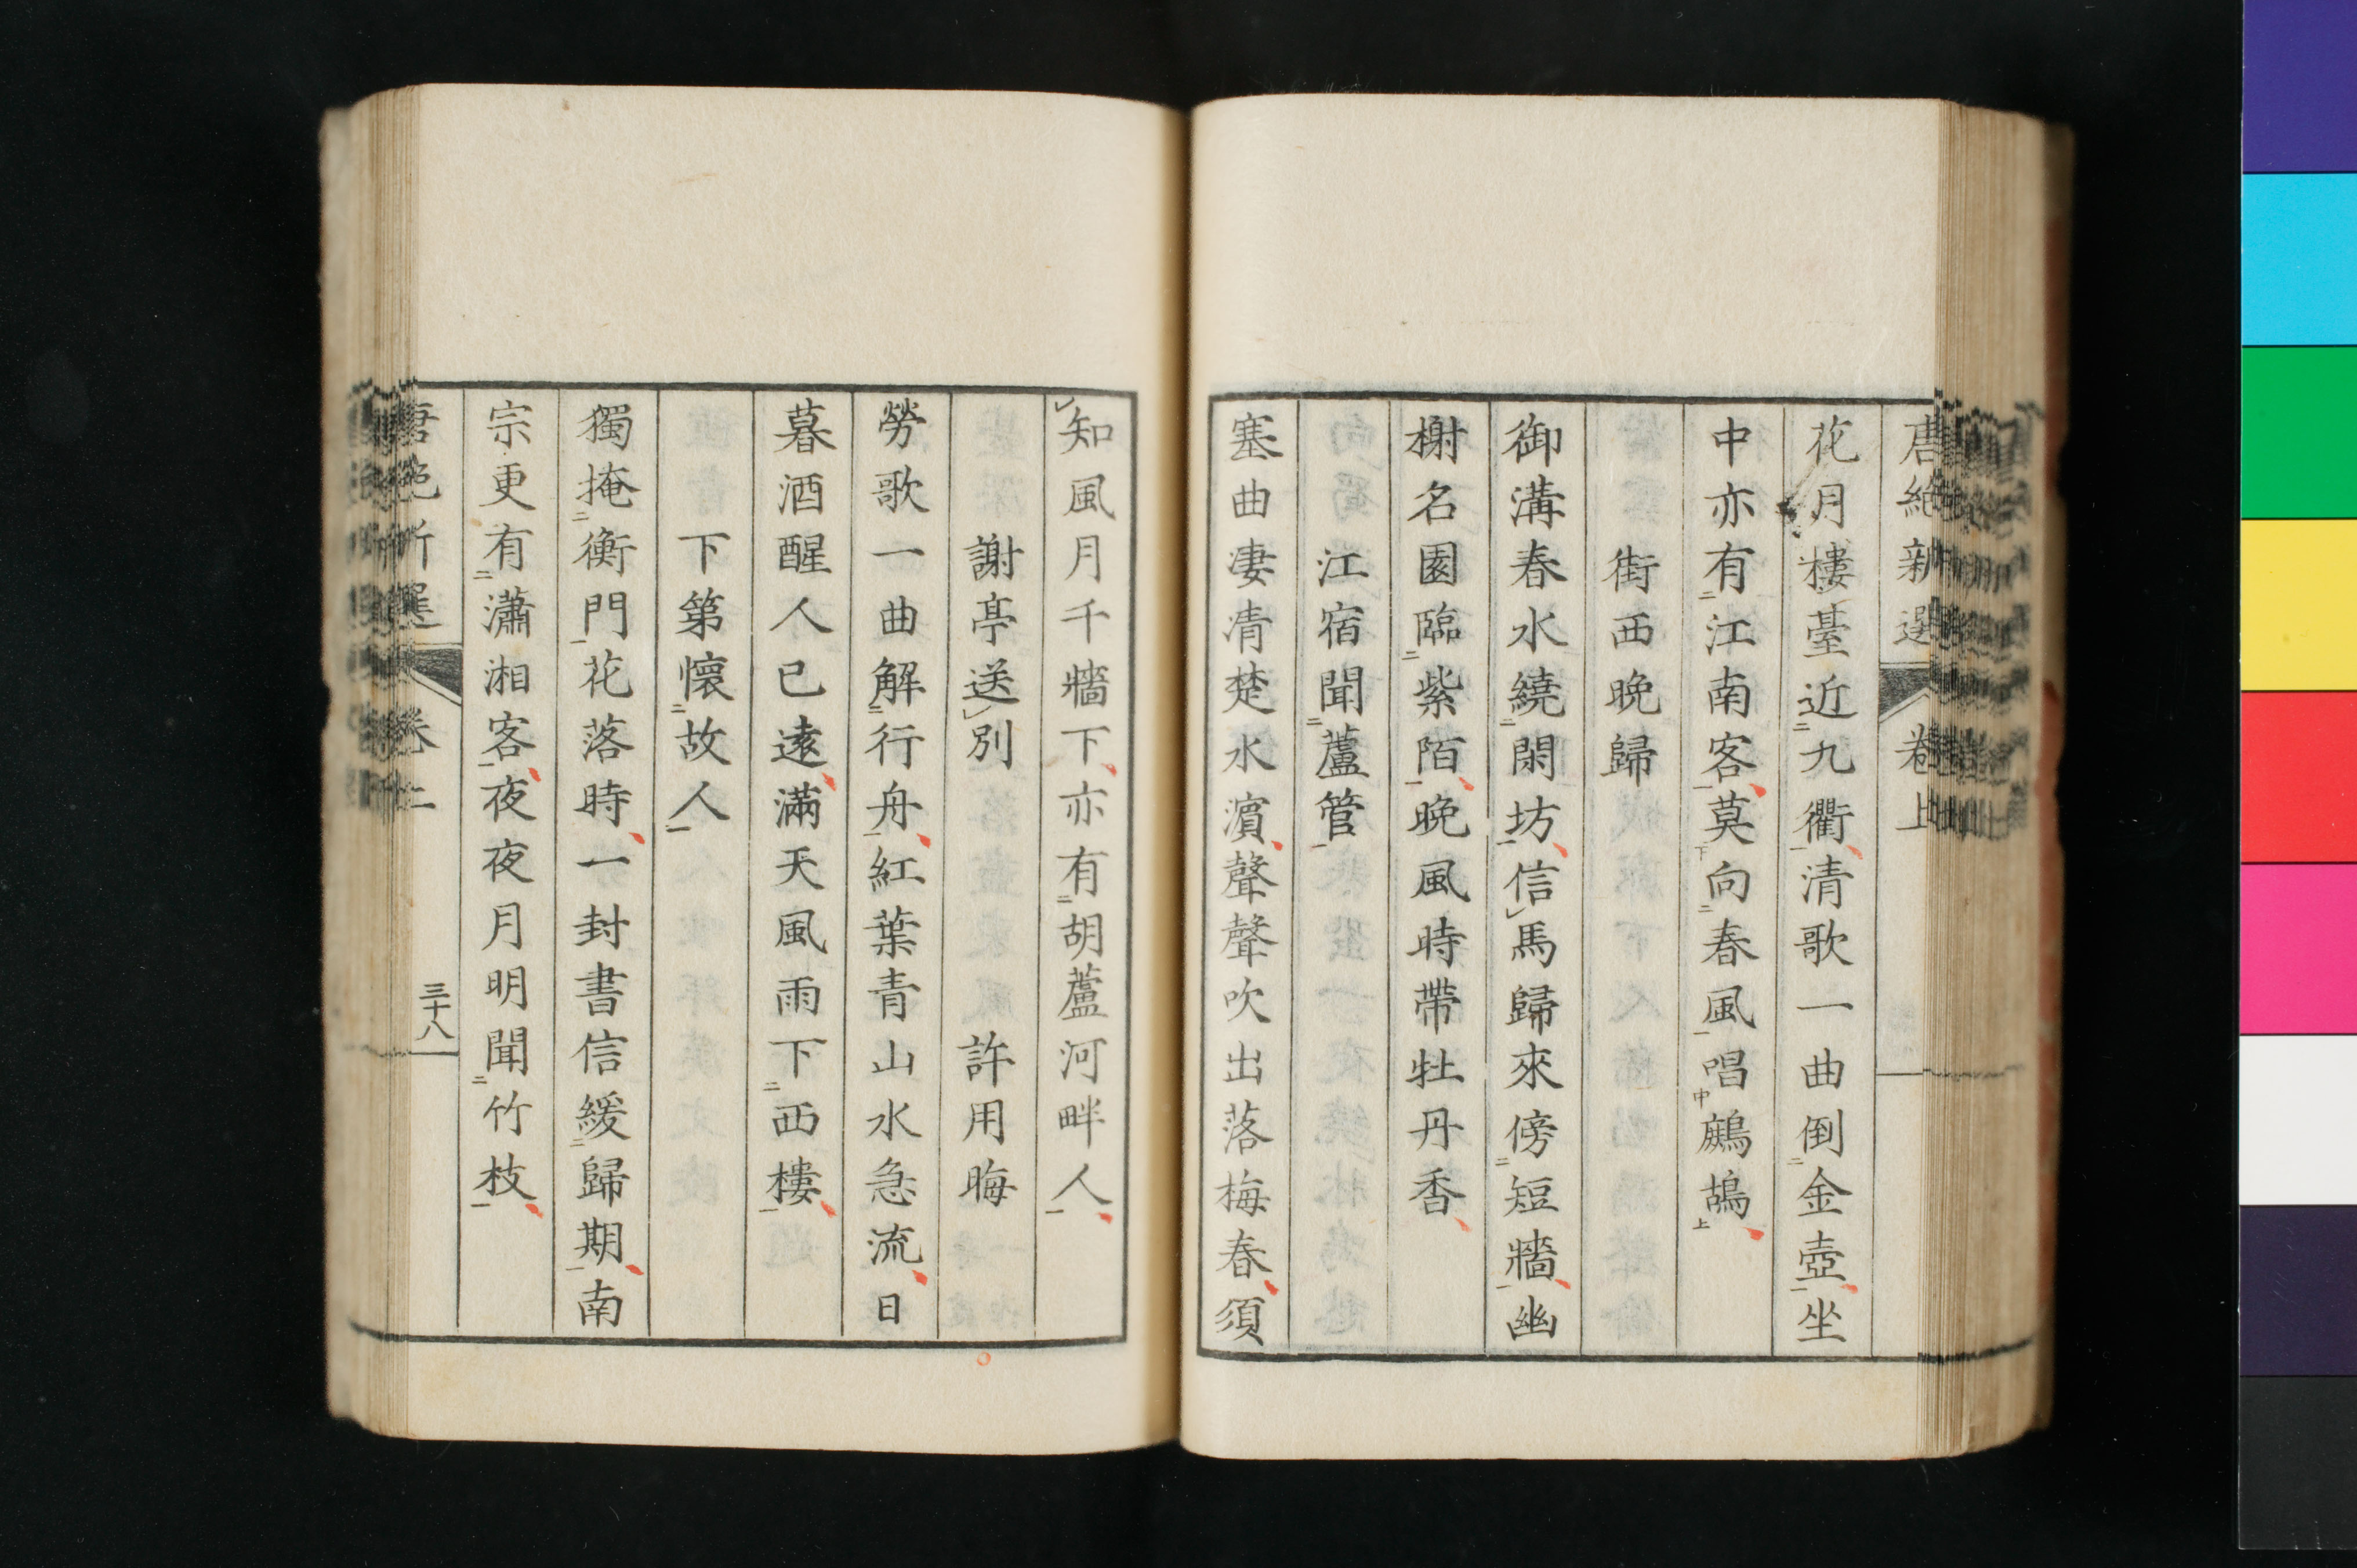 唐絶新選 卷上
花月樓臺近二九衢一清歌一曲倒二金壺一坐
中亦有二江南客一莫下向二春風一唱中鷓鴣上
街西晩歸
御溝春水繞二閑坊一信馬歸來傍二短牆一幽
榭名園臨二紫陌一晩風時帶牡丹香
江宿聞二蘆管一
塞曲凄清楚水濵聲聲吹出落梅春須
知風月千牆下亦有二胡蘆河畔人一
謝亭送別 許用晦
勞歌一曲解二行舟一紅葉青山水急流日
暮酒醒人已遠滿天風雨下二西樓一
下第懷二故人一
獨掩二衡門一花落時一封書信緩二歸期一南
宗更有二瀟湘客一夜夜月明聞二竹枝一
唐絶新選 卷上 三十八